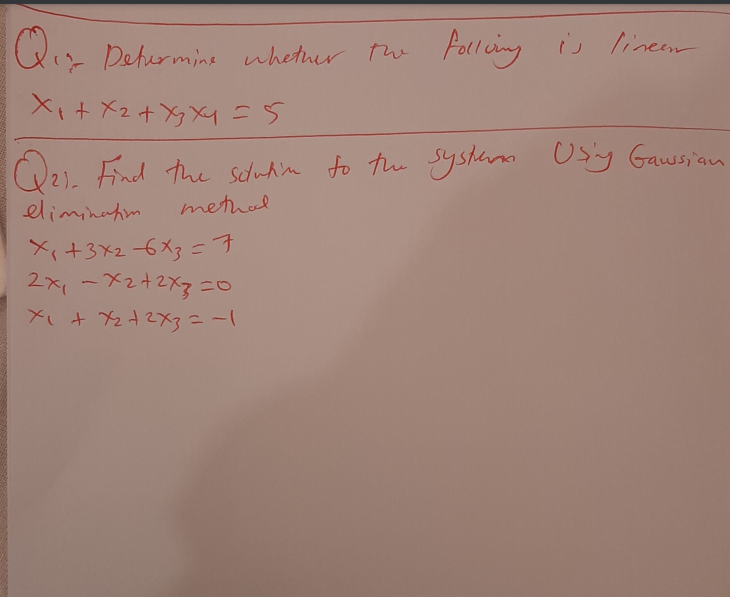 Q1:- Determine whether the follwing is linear
x₁ + x₂ + x₃x₄ = 5
Q2):- Find the solution to the system Using Gaussian
elimination method
x₁ + 3x₂ - 6x₃ = 7
2x₁ - x₂ + 2x₃ = 0
x₁ + x₂ + 2x₃ = -1